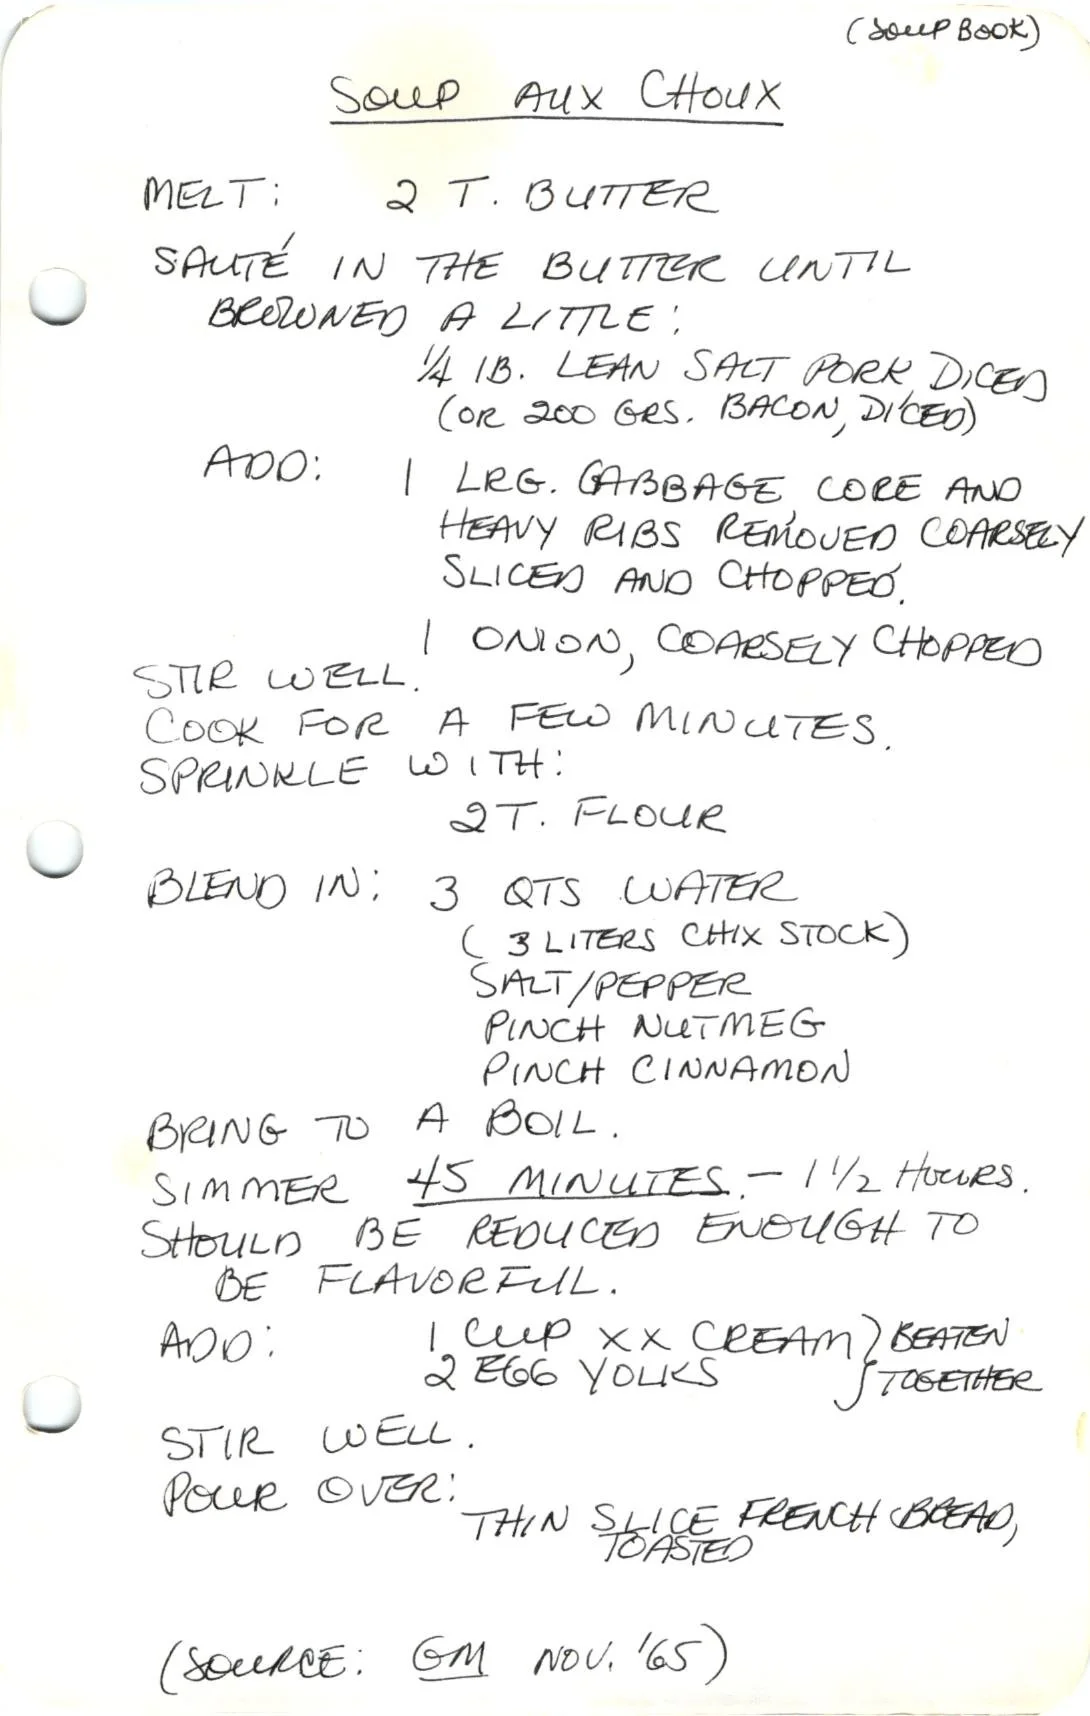 (SOUP BOOK)
SOUP AUX CHOUX
MELT: 2 T. BUTTER
SAUTÉ IN THE BUTTER UNTIL
BROWNED A LITTLE:
1/4 lB. LEAN SALT PORK, DICED
(OR 200 GRS. BACON, DICED)
ADD: 1 LRG. CABBAGE, CORE AND
HEAVY RIBS REMOVED COARSELY
SLICED AND CHOPPED.
1 ONION, COARSELY CHOPPED
STIR WELL.
COOK FOR A FEW MINUTES.
SPRINKLE WITH:
2 T. FLOUR
BLEND IN: 3 QTS WATER
(3 LITERS CHIX STOCK)
SALT/PEPPER
PINCH NUTMEG
PINCH CINNAMON
BRING TO A BOIL.
SIMMER 45 MINUTES. - 1 1/2 HOURS.
SHOULD BE REDUCED ENOUGH TO
BE FLAVORFUL.
ADD: 1 CUP XX CREAM } BEATEN
2 EGG YOLKS } TOGETHER
STIR WELL.
POUR OVER:
THIN SLICE FRENCH BREAD,
TOASTED
(SOURCE: GM NOV. '65)